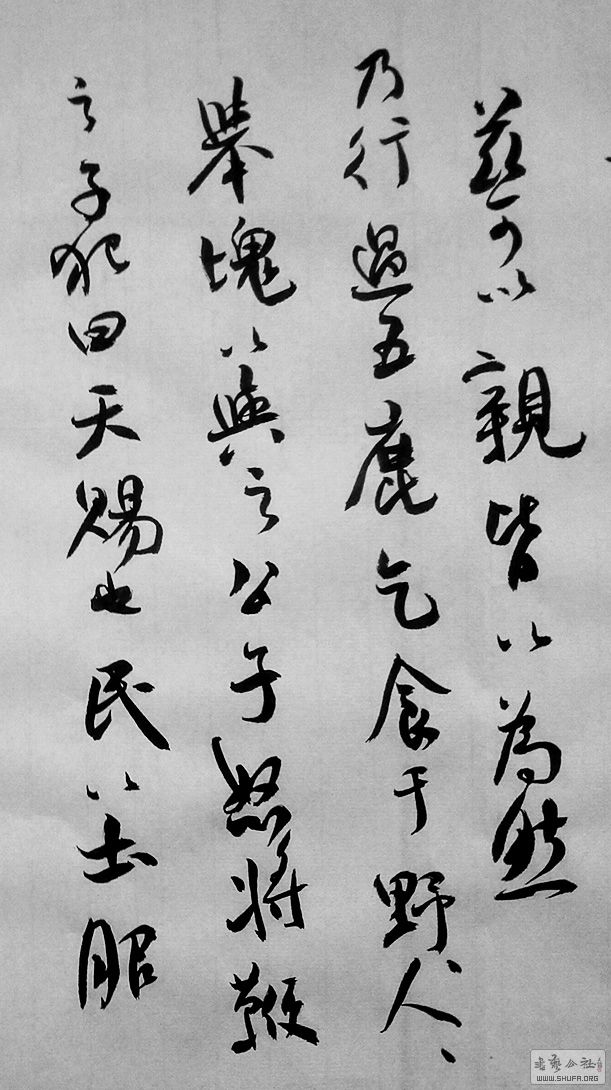 兹可以親皆以為然
乃行過五鹿乞食于野人、
舉塊以與之公子怒將鞭
之子犯曰天賜也民以土服
书艺公社
WWW.SHUFA.ORG